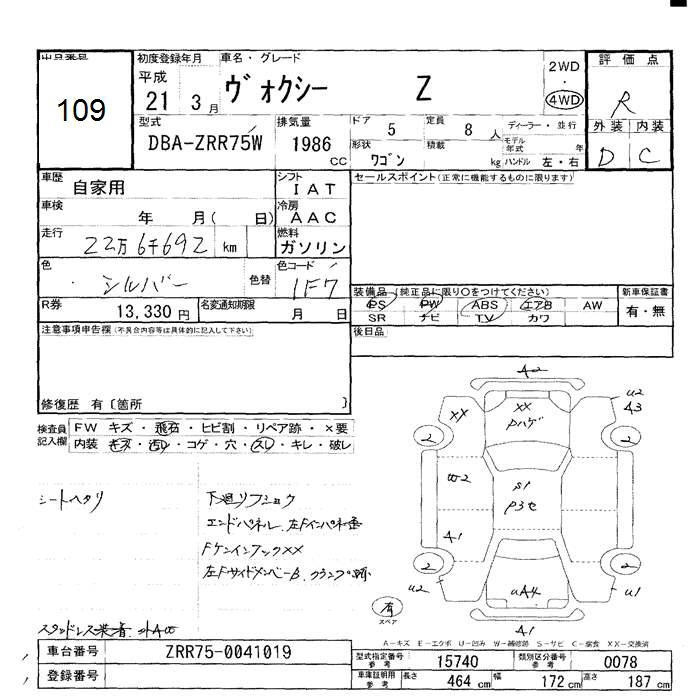 出品番号
109
初度登録年月
平成
21 3月
車名・グレード
ヴォクシー Z
2WD
・
4WD
評価点
R
外装 内装
D C
型式
DBA-ZRR75W
排気量
1986 CC
ドア 5
定員 8人
形状 ワゴン
積載 kg
ディーラー・並行
モデル年式 年
ハンドル 左・右
車歴 自家用
シフト IAT
車検 年 月( 日)
冷房 AAC
走行 22万6千692 km
燃料 ガソリン
色 シルバー 色替
色コード 1F7
R券 13,330円
名変通知期限 月 日
セールスポイント(正常に機能するものに限ります)
装備品(純正品に限り○をつけてください)
PS PW ABS エアB AW
SR ナビ TV カワ
新車保証書
有・無
後日品
注意事項申告欄(不具合内容等は具体的に記入して下さい)
修復歴 有〔箇所 〕
検査員記入欄
FW キズ・飛石・ヒビ割・リペア跡・×要
内装 キズ・汚レ・コゲ・穴・スレ・キレ・破レ
シートヘタリ
下廻リフショク
エンドパネル、左Fインパネ歪
左Fサイドメンバー
スタッドレス装着
A2
XX
XX
Pハゲ
U2
A3
2
2
W2
S1
P3セ
A1
2
2
U2
UA4
U1
有
スペア
A1
A-キズ E-エクボ U-凹み W-補修跡 S-サビ C-腐食 XX-交換済
車台番号 ZRR75-0041019
登録番号
型式指定番号 参考 15740
類別区分番号 参考 0078
車庫証明用 参考 長さ 464 cm 幅 172 cm 高さ 187 cm